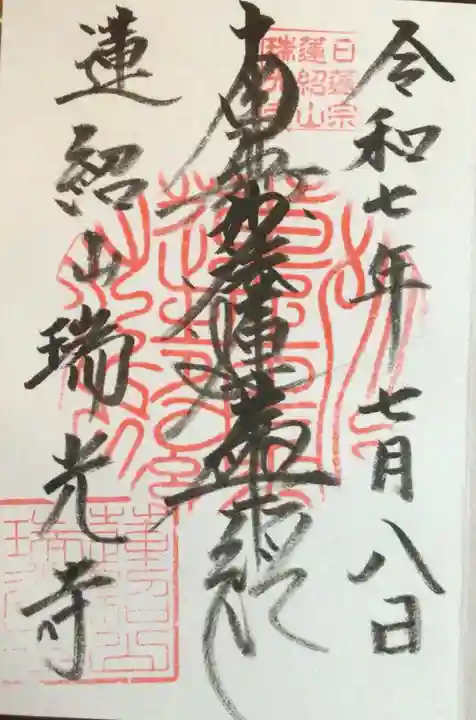 令和七年 七月八日
日蓮宗
蓮紹山
瑞光寺
南無妙法蓮華経
蓮紹山瑞光寺
蓮紹山
瑞光寺